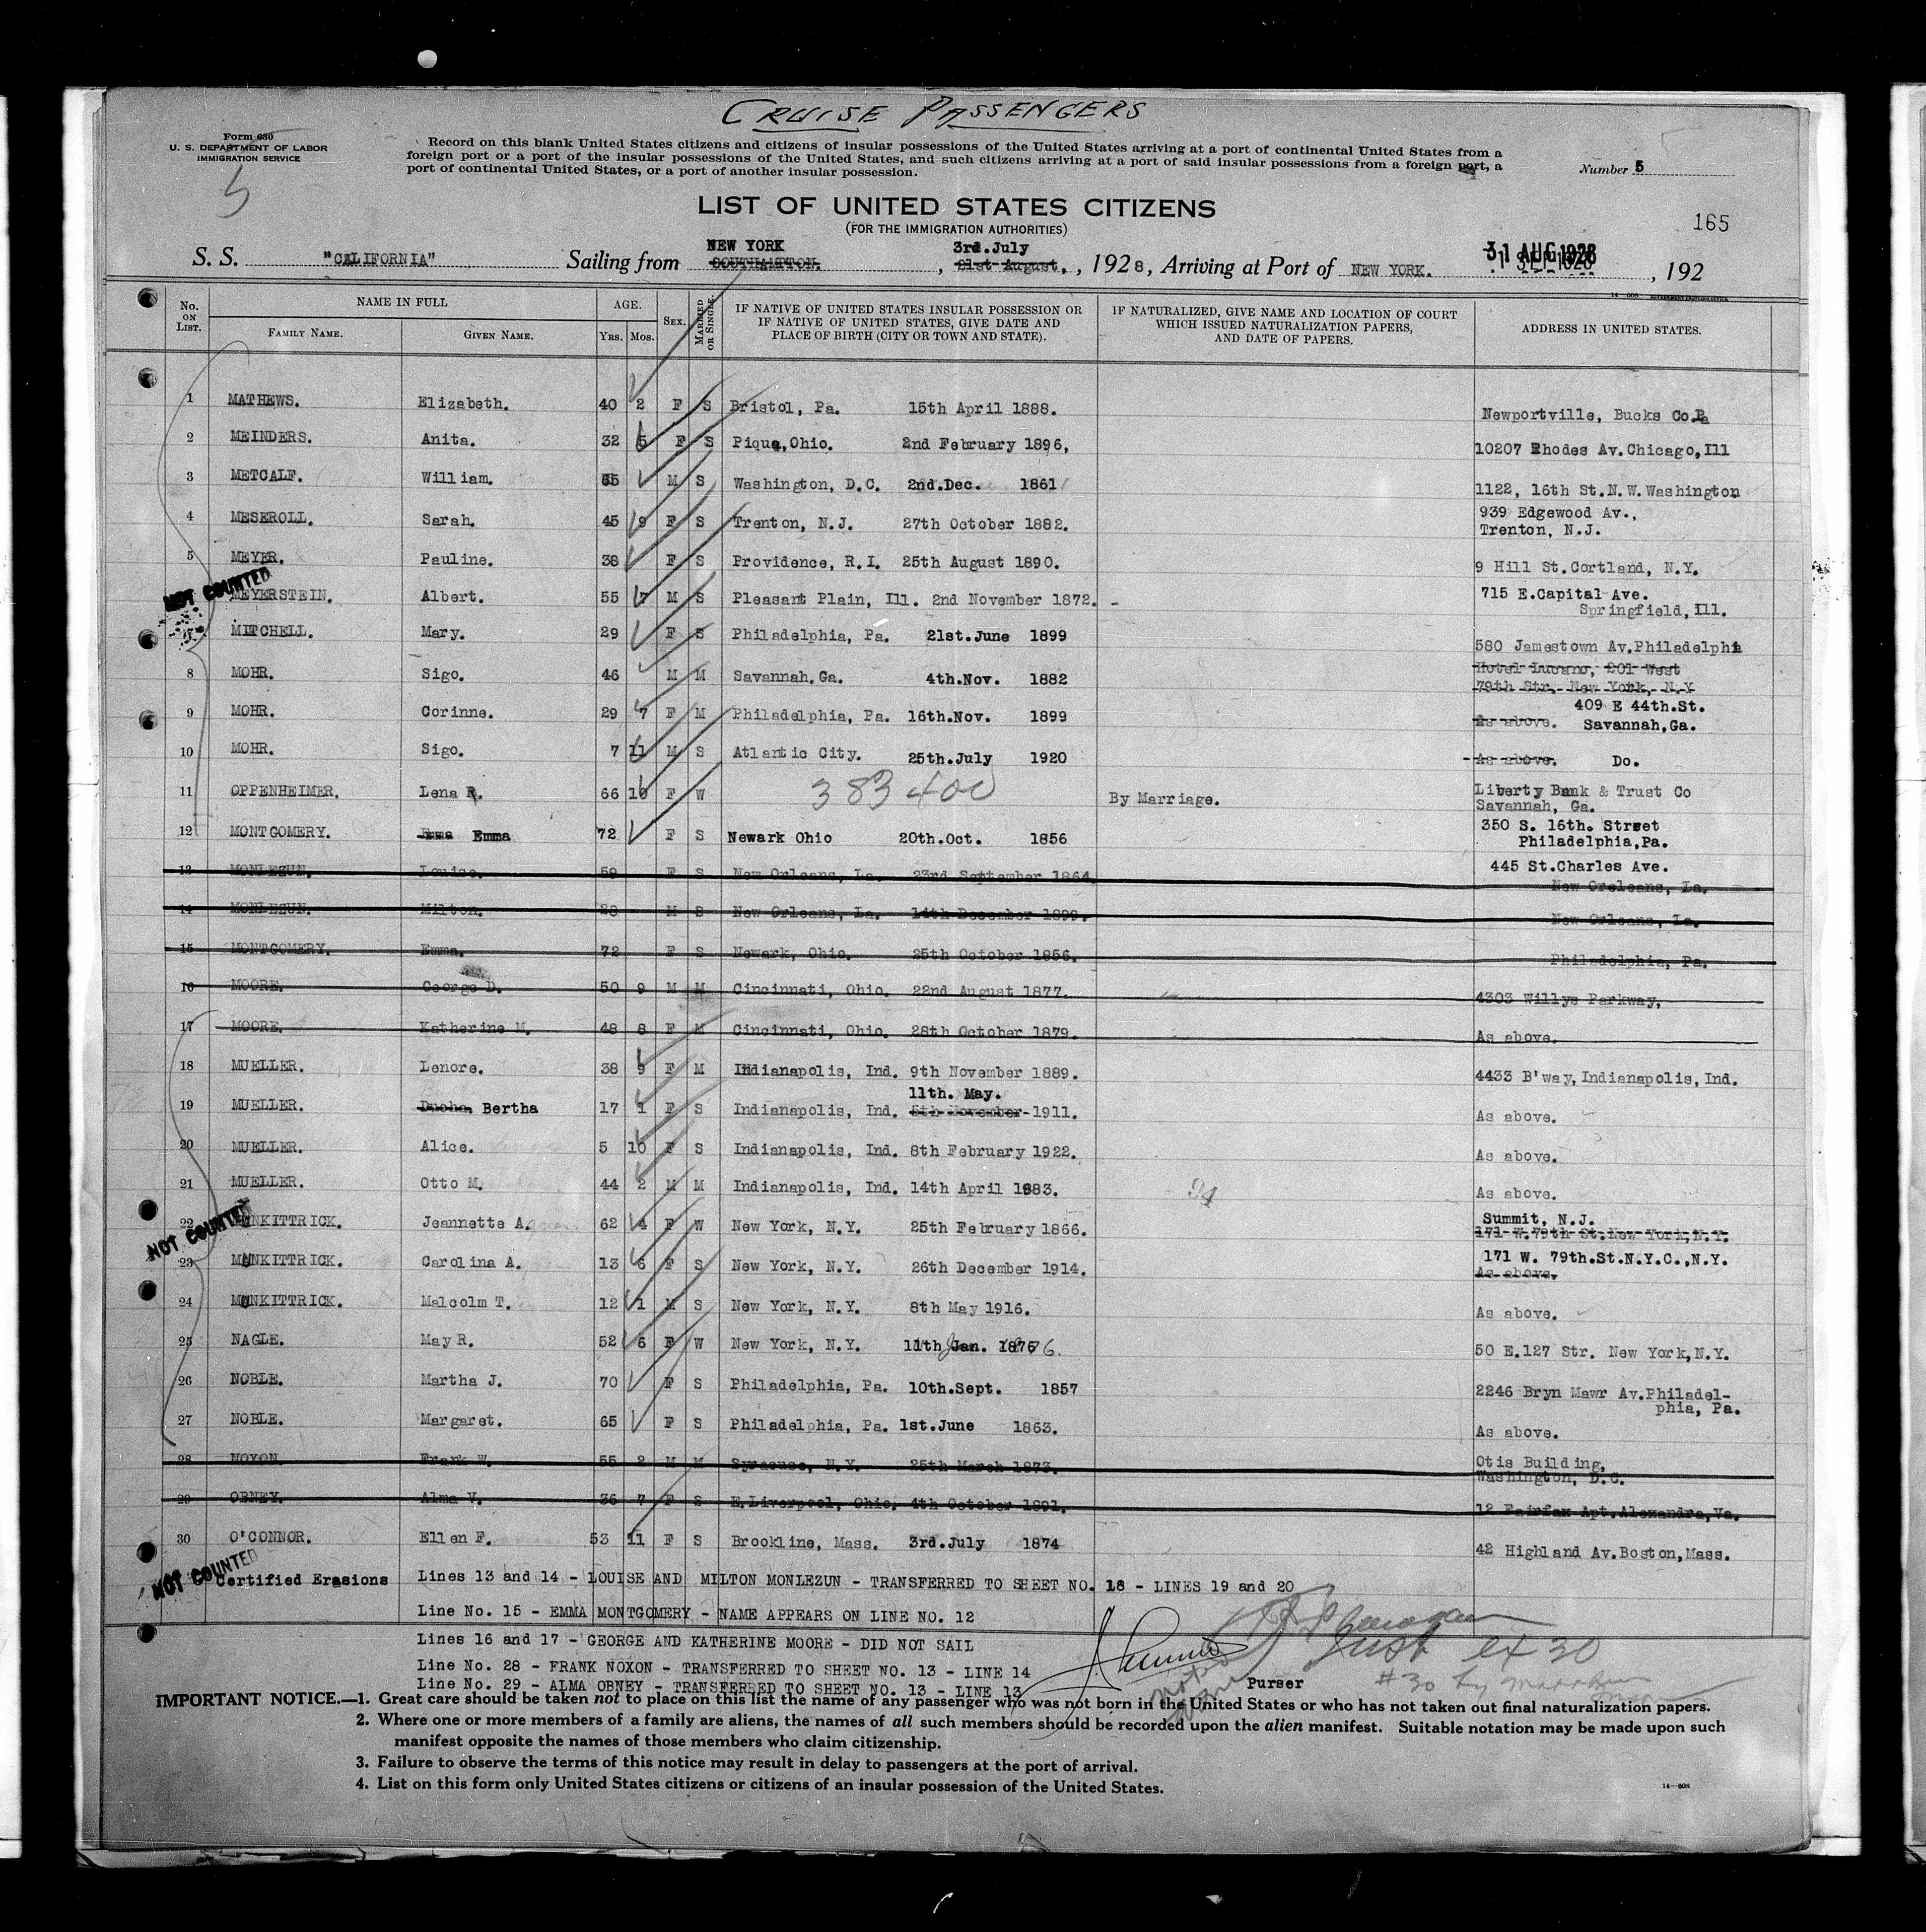 CRUISE PASSENGERS
Form 630
U. S. DEPARTMENT OF LABOR
IMMIGRATION SERVICE
5
Record on this blank United States citizens and citizens of insular possessions of the United States arriving at a port of continental United States from a
foreign port or a port of the insular possessions of the United States, and such citizens arriving at a port of said insular possessions from a foreign port, a
port of continental United States, or a port of another insular possession.
Number 5
LIST OF UNITED STATES CITIZENS
(FOR THE IMMIGRATION AUTHORITIES)
165
NEW YORK 3rd.July 31 AUG 1928
S. S. "CALIFORNIA" Sailing from SOUTHAMPTON. , 21st August, , 1928, Arriving at Port of NEW YORK. , 192
No. ON LIST. NAME IN FULL FAMILY NAME. GIVEN NAME. AGE. YRS. MOS. SEX. MARRIED OR SINGLE. IF NATIVE OF UNITED STATES INSULAR POSSESSION OR IF NATIVE OF UNITED STATES, GIVE DATE AND PLACE OF BIRTH (CITY OR TOWN AND STATE). IF NATURALIZED, GIVE NAME AND LOCATION OF COURT WHICH ISSUED NATURALIZATION PAPERS, AND DATE OF PAPERS. ADDRESS IN UNITED STATES.
1 MATHEWS. Elizabeth. 40 2 F S Bristol, Pa. 15th April 1888. Newportville, Bucks Co.Pa
2 MEINDERS. Anita. 32 5 F S Piqua,Ohio. 2nd February 1896, 10207 Rhodes Av.Chicago,Ill
3 METCALF. William. 65 M S Washington, D.C. 2nd.Dec. 1861 1122, 16th St.N.W.Washington
4 MESEROLL. Sarah. 45 9 F S Trenton, N.J. 27th October 1882. 939 Edgewood Av.,
Trenton, N.J.
5 MEYER. Pauline. 38 F S Providence, R.I. 25th August 1890. 9 Hill St.Cortland, N.Y.
NOT COUNTED
MEYERSTEIN. Albert. 55 7 M S Pleasant Plain, Ill. 2nd November 1872. - 715 E.Capital Ave.
Springfield,Ill.
MITCHELL. Mary. 29 F S Philadelphia, Pa. 21st.June 1899 580 Jamestown Av.Philadelphia
8 MOHR. Sigo. 46 M M Savannah,Ga. 4th.Nov. 1882 Hotel Lucano, 201 West
79th Str. New York, N.Y
9 MOHR. Corinne. 29 7 F M Philadelphia, Pa. 16th.Nov. 1899 409 E 44th.St.
As above. Savannah,Ga.
10 MOHR. Sigo. 7 11 M S Atlantic City. 25th.July 1920 As above. Do.
11 OPPENHEIMER. Lena R. 66 10 F W 383400 By Marriage. Liberty Bank & Trust Co
Savannah, Ga.
12 MONTGOMERY. Emma Emma 72 F S Newark Ohio 20th.Oct. 1856 350 S. 16th. Street
Philadelphia,Pa.
13 MONLEZUN. Louise. 59 F S New Orleans, La. 23rd September 1864 445 St.Charles Ave.
New Orleans, La.
14 MONLEZUN. Milton. 28 M S New Orleans, La. 14th December 1899. New Orleans, La.
15 MONTGOMERY. Emma. 72 F S Newark, Ohio. 25th October 1856. Philadelphia, Pa.
16 MOORE. George D. 50 9 M M Cincinnati, Ohio. 22nd August 1877. 4303 Willys Parkway,
17 MOORE. Katherine M. 48 8 F M Cincinnati, Ohio. 28th October 1879. As above.
18 MUELLER. Lenore. 38 9 F M Indianapolis, Ind. 9th November 1889. 4433 B'way,Indianapolis,Ind.
11th. May.
19 MUELLER. Bertha 17 1 F S Indianapolis, Ind. 5th November-1911. As above.
20 MUELLER. Alice. 5 10 F S Indianapolis, Ind. 8th February 1922. As above.
21 MUELLER. Otto M. 44 2 M M Indianapolis, Ind. 14th April 1883. 94 As above.
22 MUNKITTRICK. Jeannette A. 62 4 F W New York, N.Y. 25th February 1866. Summit, N.J.
171 W.79th St.New York,N.Y.
NOT COUNTED
23 MUNKITTRICK. Carolina A. 13 6 F S New York, N.Y. 26th December 1914. 171 W. 79th.St.N.Y.C.,N.Y.
As above.
24 MUNKITTRICK. Malcolm T. 12 1 M S New York, N.Y. 8th May 1916. As above.
25 NAGLE. May R. 52 6 F W New York, N.Y. 11th Jan. 1876. 50 E.127 Str. New York,N.Y.
26 NOBLE. Martha J. 70 F S Philadelphia, Pa. 10th.Sept. 1857 2246 Bryn Mawr Av.Philadel-
phia, Pa.
27 NOBLE. Margaret. 65 F S Philadelphia, Pa. 1st.June 1863. As above.
28 NOXON. Frank W. 55 2 M M Syracuse, N.Y. 25th March 1873. Otis Building,
Washington, D.C.
29 OBNEY. Alma V. 36 7 F S E.Liverpool, Ohio, 4th October 1891. 12 Fairfax Apt.Alexandra,Va.
30 O'CONNOR. Ellen F. 53 11 F S Brookline, Mass. 3rd.July 1874 42 Highland Av.Boston,Mass.
NOT COUNTED
Certified Erasions Lines 13 and 14 - LOUISE AND MILTON MONLEZUN - TRANSFERRED TO SHEET NO. 18 - LINES 19 and 20
Line No. 15 - EMMA MONTGOMERY - NAME APPEARS ON LINE NO. 12
Lines 16 and 17 - GEORGE AND KATHERINE MOORE - DID NOT SAIL
Line No. 28 - FRANK NOXON - TRANSFERRED TO SHEET NO. 13 - LINE 14
Line No. 29 - ALMA OBNEY - TRANSFERRED TO SHEET NO. 13 - LINE 13
ex 30
Purser
#30 by
IMPORTANT NOTICE.—1. Great care should be taken not to place on this list the name of any passenger who was not born in the United States or who has not taken out final naturalization papers.
2. Where one or more members of a family are aliens, the names of all such members should be recorded upon the alien manifest. Suitable notation may be made upon such
manifest opposite the names of those members who claim citizenship.
3. Failure to observe the terms of this notice may result in delay to passengers at the port of arrival.
4. List on this form only United States citizens or citizens of an insular possession of the United States.